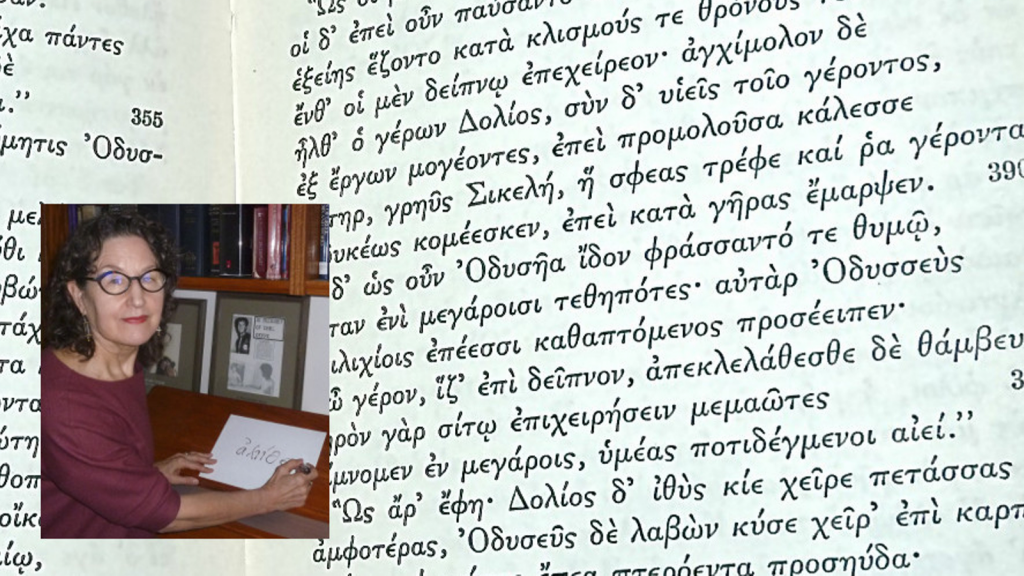 χα πάντες
355
μητις Ὀδυσ-
οἱ δ’ ἐπεὶ οὖν παύσαντο
ἑξείης ἕζοντο κατὰ κλισμούς τε θρόνους
ἔνθ’ οἱ μὲν δείπνῳ ἐπεχείρεον· ἀγχίμολον δὲ
ἦλθ’ ὁ γέρων Δολίος, σὺν δ’ υἱεῖς τοῖο γέροντος,
ἐξ ἔργων μογέοντες, ἐπεὶ προμολοῦσα κάλεσσε
τηρ, γρηῦς Σικελή, ἥ σφεας τρέφε καί ῥα γέροντα
υκέως κομέεσκεν, ἐπεὶ κατὰ γῆρας ἔμαρψεν. 390
δ’ ὡς οὖν Ὀδυσῆα ἴδον φράσσαντό τε θυμῷ,
ταν ἐνὶ μεγάροισι τεθηπότες· αὐτὰρ Ὀδυσσεὺς
ιλιχίοις ἐπέεσσι καθαπτόμενος προσέειπεν·
γέρον, ἵζ’ ἐπὶ δεῖπνον, ἀπεκλελάθεσθε δὲ θάμβευ
ρὸν γὰρ σίτῳ ἐπιχειρήσειν μεμαῶτες
μνομεν ἐν μεγάροις, ὑμέας ποτιδέγμενοι αἰεί.”
Ὣς ἄρ’ ἔφη· Δολίος δ’ ἰθὺς κίε χεῖρε πετάσσας
ἀμφοτέρας, Ὀδυσεῦς δὲ λαβὼν κύσε χεῖρ’ ἐπὶ καρπ
ἔπεα πτερόεντα προσηύδα·